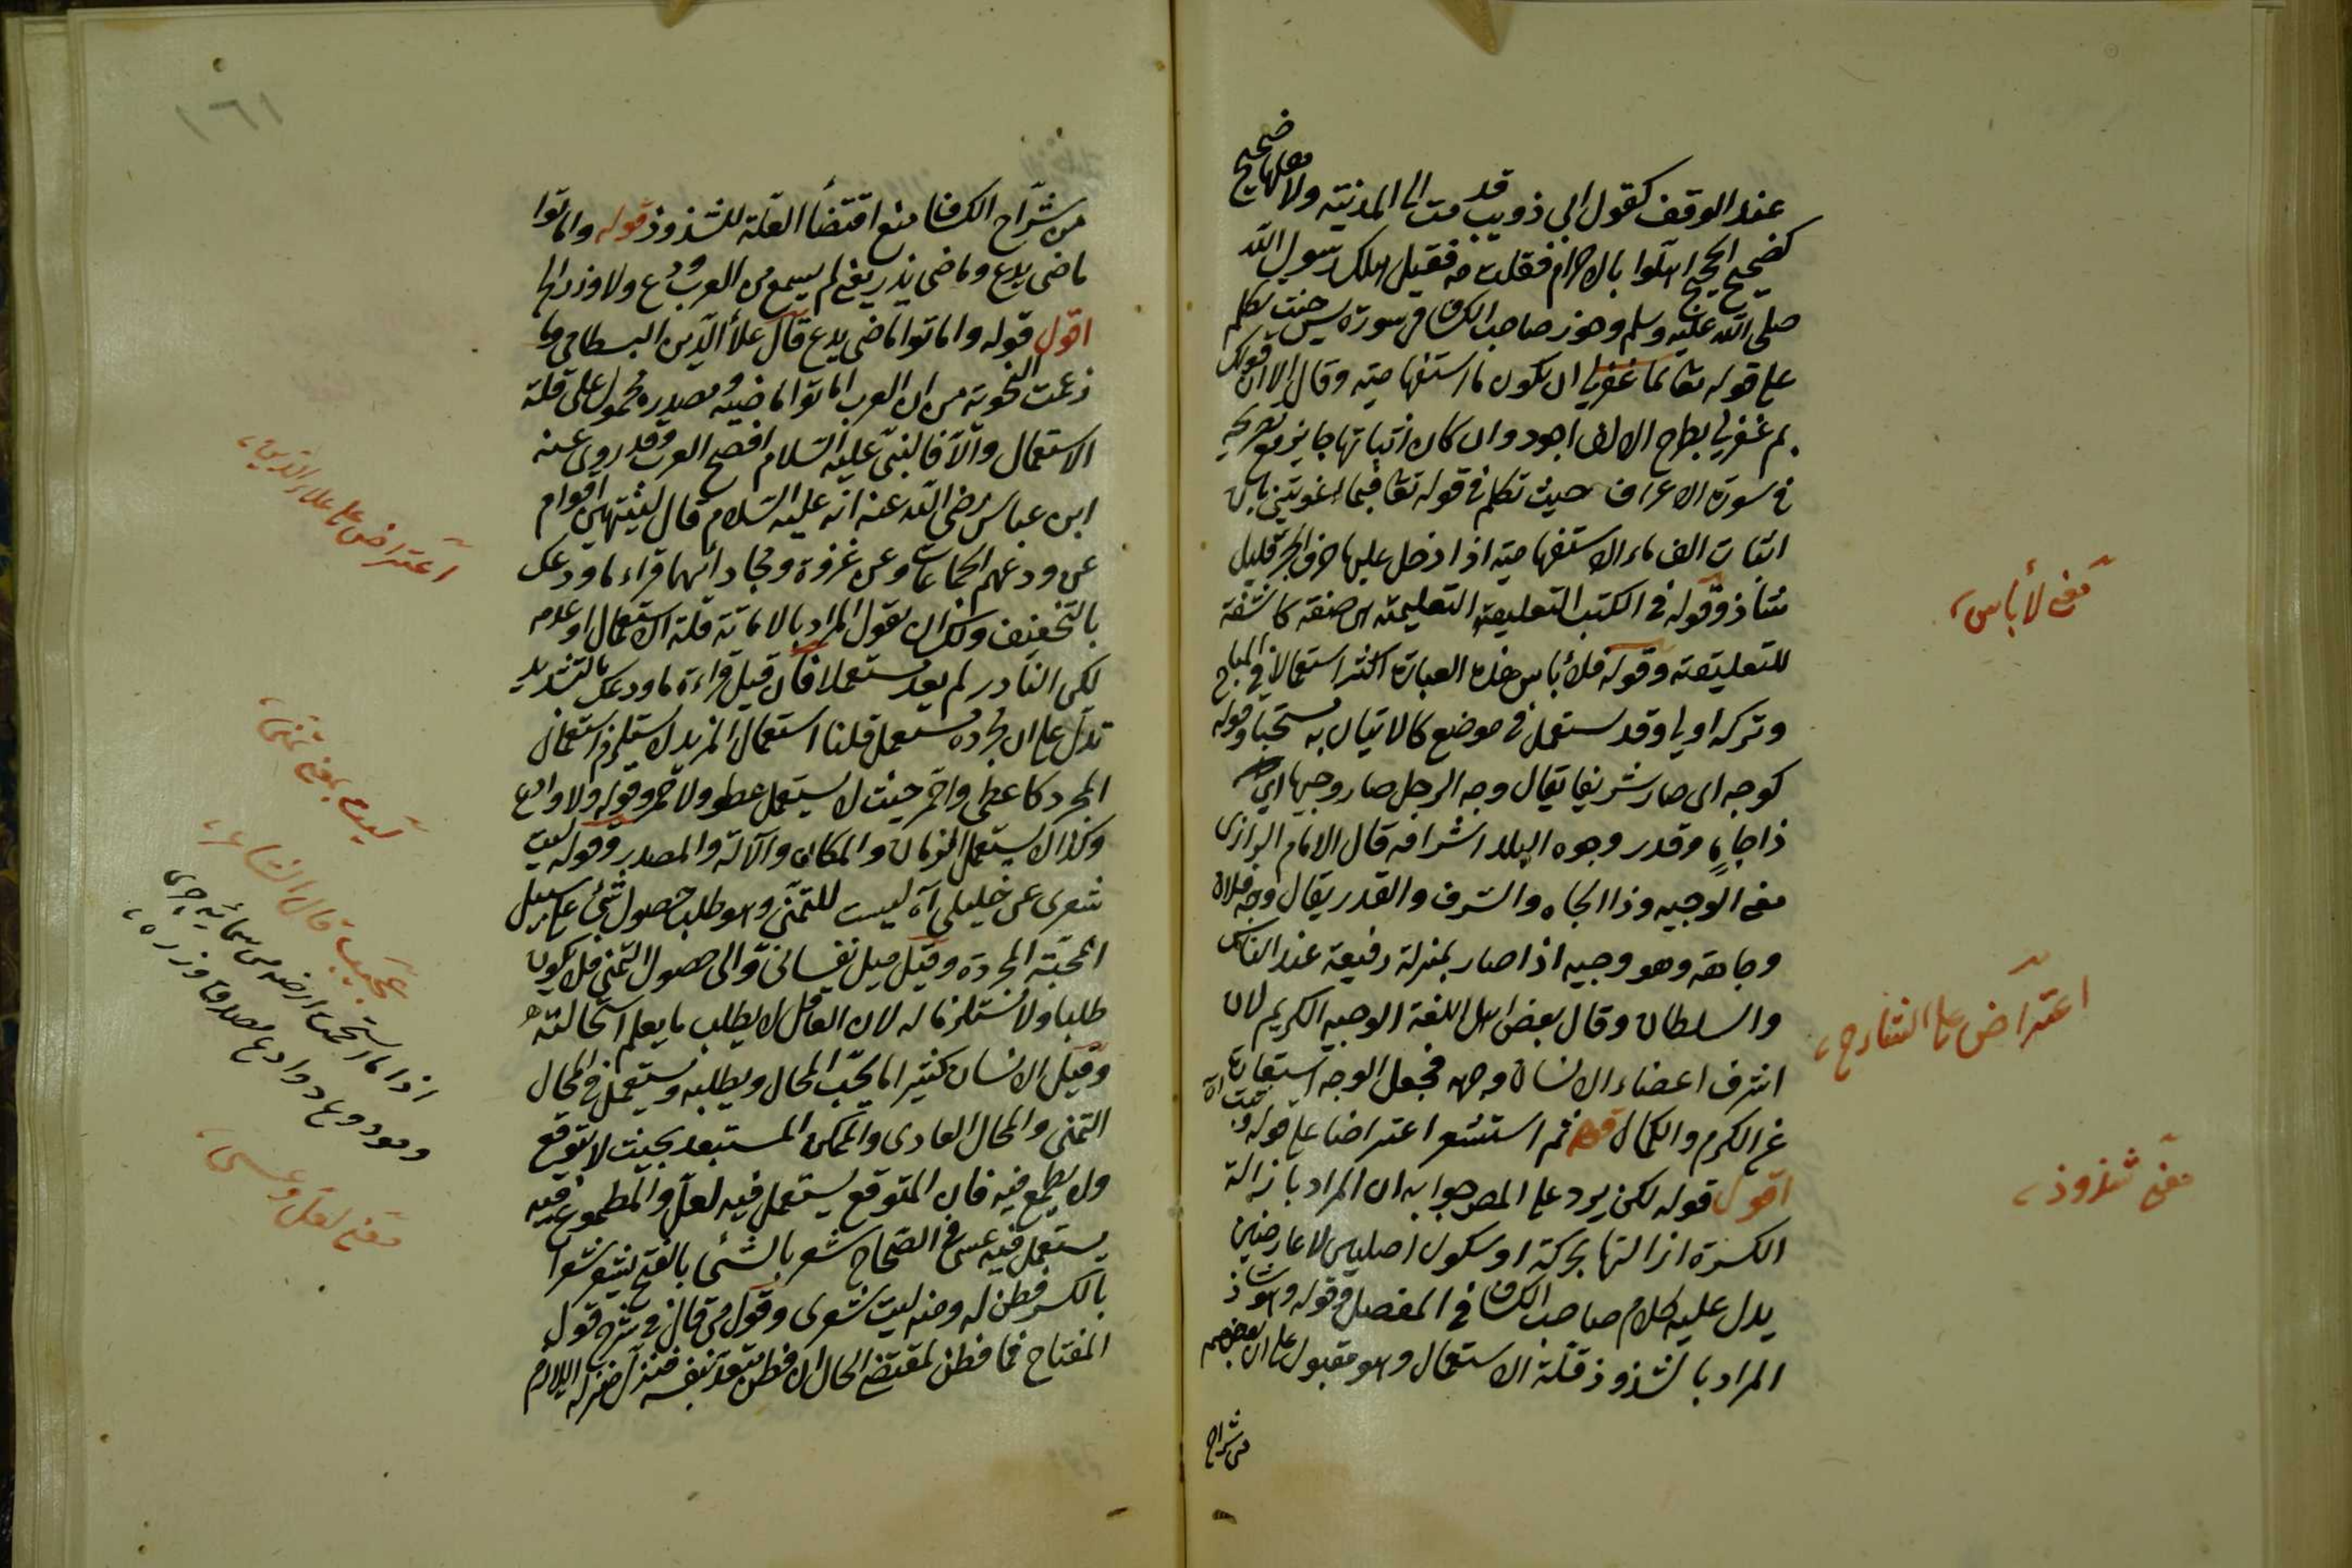 عند الوقف كقول ابي ذويب قدمت الى المدينة ولاهلها ضجيج
كضجيج الحجيج اهلوا بالاحرام فقلت مه فقيل هلك رسول الله
صلى الله عليه وسلم وجوز صاحب الكشاف في سورة يس حيث تكلم
على قوله تعالى بما غفر لي ان تكون ما استفهامية وقال الا ان قولك
بم غفر لي بطرح الالف اجود وان كان اثباتها جايز مع تصريحه
في سورة الاعراف حيث تكلم في قوله تعالى فبما اغويتني بان
اثبات الف ماء الاستفهامية اذا دخل عليها حرف الجر قليل
شاذ وقوله في الكتب التعليقية التعليمية اي صفة كاشفة
للتعليقية وقوله فلا بأس هذه العبارة اكثر استعمالا في المباح
وتركه اولى وقد يستعمل في موضع كان الاتيان به مستحبا وقوله
كوجه اي صار شريفا يقال وجه الرجل صار وجيها اي
ذا جاه وقدر ووجوه البلد اشرافه قال الامام الرازي
معنى الوجيه وذا الجاه والشرف والقدر يقال وجه فلان
وجاهة وهو وجيه اذا صار بمنزلة رفيعة عند الناس
والسلطان وقال بعض اهل اللغة الوجيه الكريم لان
اشرف اعضاء الانسان وجهه فجعل الوجه استعارة
عن الكرم والكمال قوله ثم استشعر اعتراضا على قوله
اقول قوله لكن يرد على المص جوابه ان المراد بازالة
الكسرة ازالتها بحركة او سكون اصليين لا عارضين
يدل عليه كلام صاحب الكشاف في المفصل وقوله وهو شاذ
المراد بالشذوذ قلة الاستعمال وهو مقبول على ان بعضهم
من شراح
معنى لا بأس
اعتراض على الشارح
معنى شذوذ
١٦١
من شراح الكشاف منع اقتضأ القلة للشذوذ قوله واماتوا
ماضي يدع وماضي يذر يعني لم يسمع من العرب ودع ولا وذر الخ
اقول قوله واماتوا ماضي يدع قال علأ الدين البسطامي وما
زعمت النحوية من ان العرب اماتوا ماضيه ومصدره محمول على قلة
الاستعمال والا فالنبي عليه السلام افصح العرب وقد روى عنه
ابن عباس رضي الله عنه انه عليه السلام قال لينتهين اقوام
عن ودعهم الجماعات وعن عروة ومجاهد انهما قراء ما ودعك
بالتخفيف ولك ان تقول المراد بالاماتة قلة الاستعمال او عدمه
لكن النادر لم يعد مستعملا فان قيل قراءة ما ودعك بالتشديد
تدل على ان مجرده مستعمل قلنا استعمال المزيد لا يستلزم استعمال
المجرد كاعطى واحمر حيث لا يستعمل عطو ولا حمر وقوله ولا وادع
وكذا لا يستعمل الزمان والمكان والآلة والمصدر وقوله ليت
شعري عن خليلي آه ليست للتمني وهو طلب حصول شئ على سبيل
المحبة المجردة وقيل ميل نفساني والى حصول التمني فلا يكون
طلبا ولا مستلزما له لان العاقل لا يطلب ما يعلم استحالته
وقيل الانسان كثيرا ما يحب المحال ويطلبه ويستعمل في المحال
التمني والمحال العادي والممكن المستبعد بحيث لا يتوقع
ولا يطمع فيه فان المتوقع يستعمل فيه لعل والمطموع فيه
يستعمل فيه عسى في الصحاح شعر بالشئ بالفتح يشعر شعرا
بالكسر فطن له ومنه ليت شعري وقول من قال في شرح قول
المفتاح فما فطن لمقتضى الحال ان فطن يتعد بنفسه فنزل منزلة اللازم
اعتراض على علاء الدين
ليت بمعنى تمنى
عجيب قال الشاعر
اذا ما استحمت ارضه من سمائه جرى
وهو مودوع وواعد مصدق وزره
معنى لعل وعسى